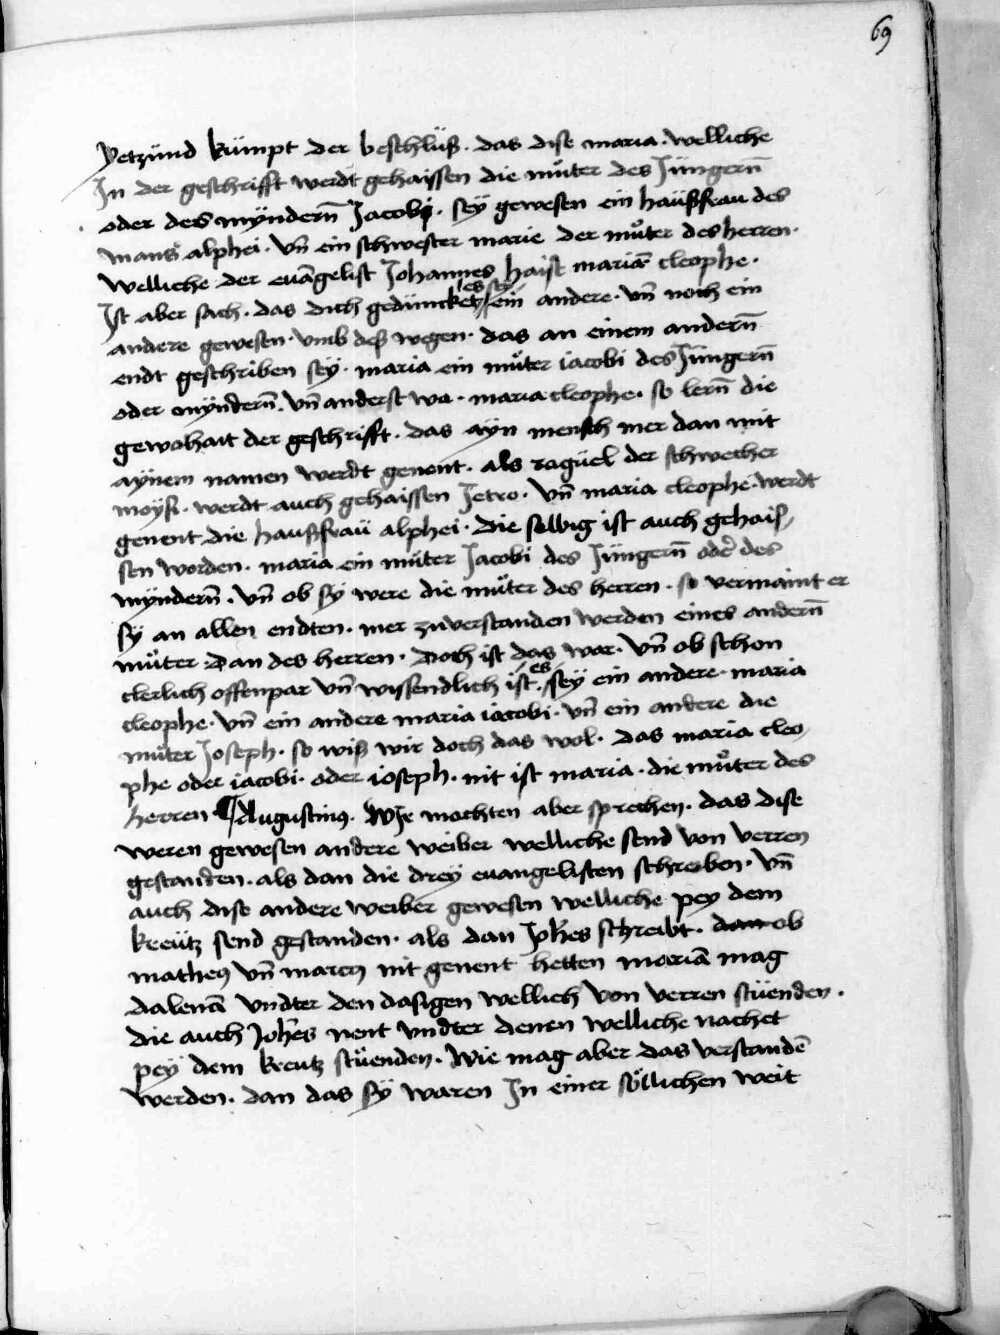 69
Yetzund kumpt der beschluß · das dise maria · welliche
In der geschrifft werdt gehaissen die muter des Jungern̄
oder des myndern̄ Jacobi · sey gewesen ein haußfrau des
mans alphei · vn̄ ein schwester marie der muter des herren ·
welliche der evāgelist Johannes haist mariā cleophe ·
Ist aber sach · das dich geduncket es sey ein andere · vn̄ noch ein
andere gewesen · vmb deß wegen · das an einem andern̄
endt geschriben sey · maria ein muter iacobi des Jungern̄
oder myndern̄ · vn̄ anderst wa · maria cleophe · so lern̄ die
gewohait der geschrifft · das ayn mensch mer dan mit
aynem namen werdt genent · als raguel der schwecher
moysi · werdt auch gehaissen Jetro · vn̄ maria cleophe · werdt
genent die haußfrau alphei · die selbig ist auch gehais/
sen worden · maria ein muter Jacobi des Jungern̄ oder des
myndern̄ · vn̄ ob sy were die muter des herren · so vermaint er
sy an allen endten · mer zuverstanden werden eines andern̄
muter · dan des herren · doch ist das war · vn̄ ob schon
clerlich offenpar vn̄ wissendlich ist · es sey ein andere · maria
cleophe · vn̄ ein andere maria iacobi · vn̄ ein andere die
muter Joseph · so wiß wir doch das wol · das maria cleo/
phe oder iacobi · oder ioseph · nit ist maria · die muter des
herren ¶ Augustinus · Wie mochten aber sprechen · das dise
weren gewesen andere weiber welliche send von verren
gestanden · als dan die drey euangelisten schreiben · vn̄
auch dise andere weiber gewesen welliche pey dem
kreutz send gestanden · als dan Joh̄es schreibt · dan ob
matheus vn̄ marcus nit genent hetten mariā mag
dalenā vndter den dasigen wellich von verren stuenden ·
die auch Joh̄es nent vndter denen welliche nachet
pey dem kreutz stuenden · Wie mag aber das verstandē
werden · dan das sy waren In einer sollichen weit